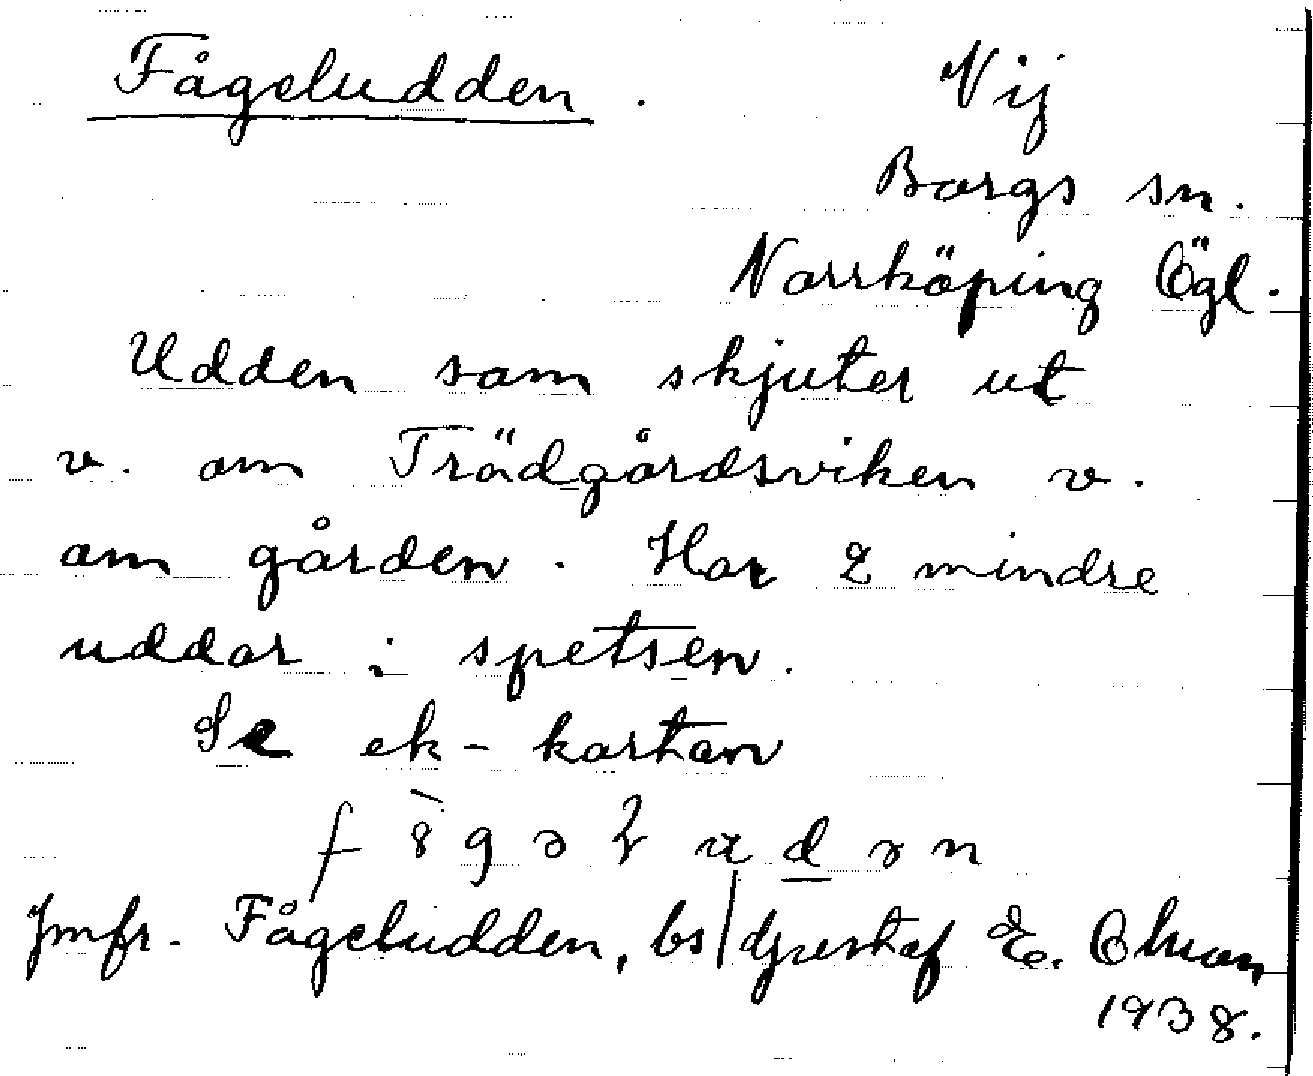 Fågeludden. Vij
Borgs sn.
Norrköping Ögl.
Udden som skjuter ut
v. om Trädgårdsviken v.
om gården. Har 2 mindre
uddar i spetsen.
Se ek-kartan
Jmfr. Fågeludden, bs Gustaf E. Ohman
1938.